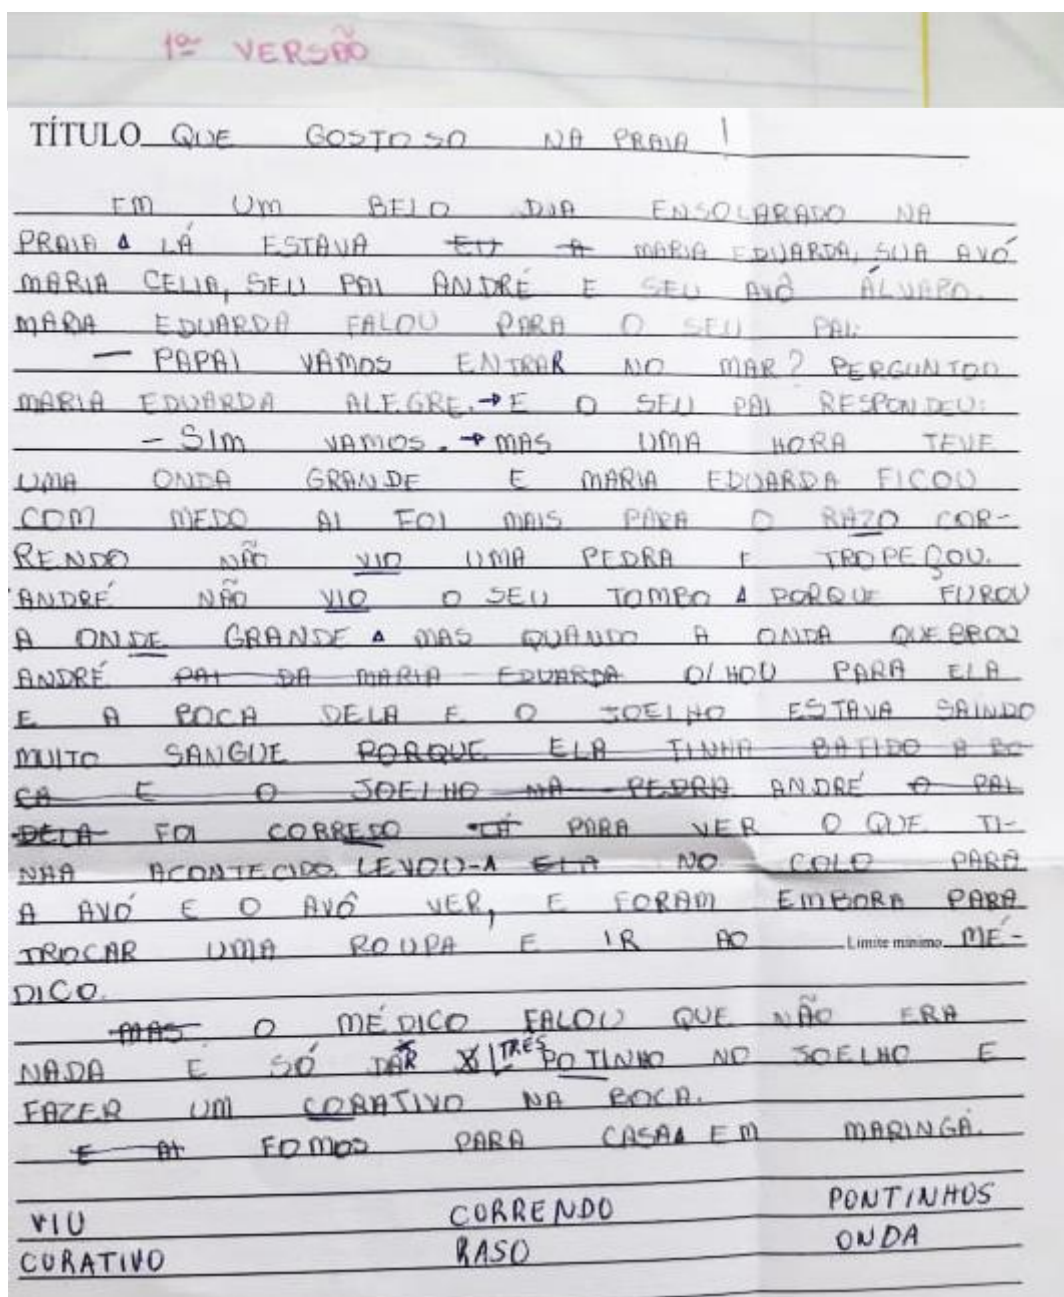 1ª VERSÃO
TÍTULO QUE GOSTOSO NA PRAIA!
EM UM BELO DIA ENSOLARADO NA
PRAIA LÁ ESTAVA EU A MARIA EDUARDA, SUA AVÓ
MARIA CELIA, SEU PAI ANDRÉ E SEU AVÔ ÁLVARO.
MARIA EDUARDA FALOU PARA O SEU PAI:
— PAPAI VAMOS ENTRAR NO MAR? PERGUNTOU
MARIA EDUARDA ALEGRE. → E O SEU PAI RESPONDEU:
- SIM VAMOS. → MAS UMA HORA TEVE
UMA ONDA GRANDE E MARIA EDUARDA FICOU
COM MEDO AI FOI MAIS PARA O RAZO COR-
RENDO NÃO VIO UMA PEDRA E TROPEÇOU.
ANDRÉ NÃO VIO O SEU TOMBO PORQUE FUROU
A ONDE GRANDE MAS QUANDO A ONDA QUEBROU
ANDRÉ PAI DA MARIA EDUARDA OLHOU PARA ELA
E A BOCA DELA E O JOELHO ESTAVA SAINDO
MUITO SANGUE PORQUE ELA TINHA BATIDO A BO-
CA E O JOELHO NA PEDRA. ANDRÉ O PAI
DELA FOI CORREDO LÁ PARA VER O QUE TI-
NHA ACONTECIDO. LEVOU-A ELA NO COLO PARA
A AVÓ E O AVÔ VER, E FORAM EMBORA PARA
TROCAR UMA ROUPA E IR AO Limite mínimo MÉ-
DICO.
MAS O MÉDICO FALOU QUE NÃO ERA
NADA E SÓ DAR TRÊS POTINHO NO JOELHO E
FAZER UM CORATIVO NA BOCA.
E AI FOMOS PARA CASA EM MARINGÁ.
VIU CORRENDO PONTINHOS
CURATIVO RASO ONDA